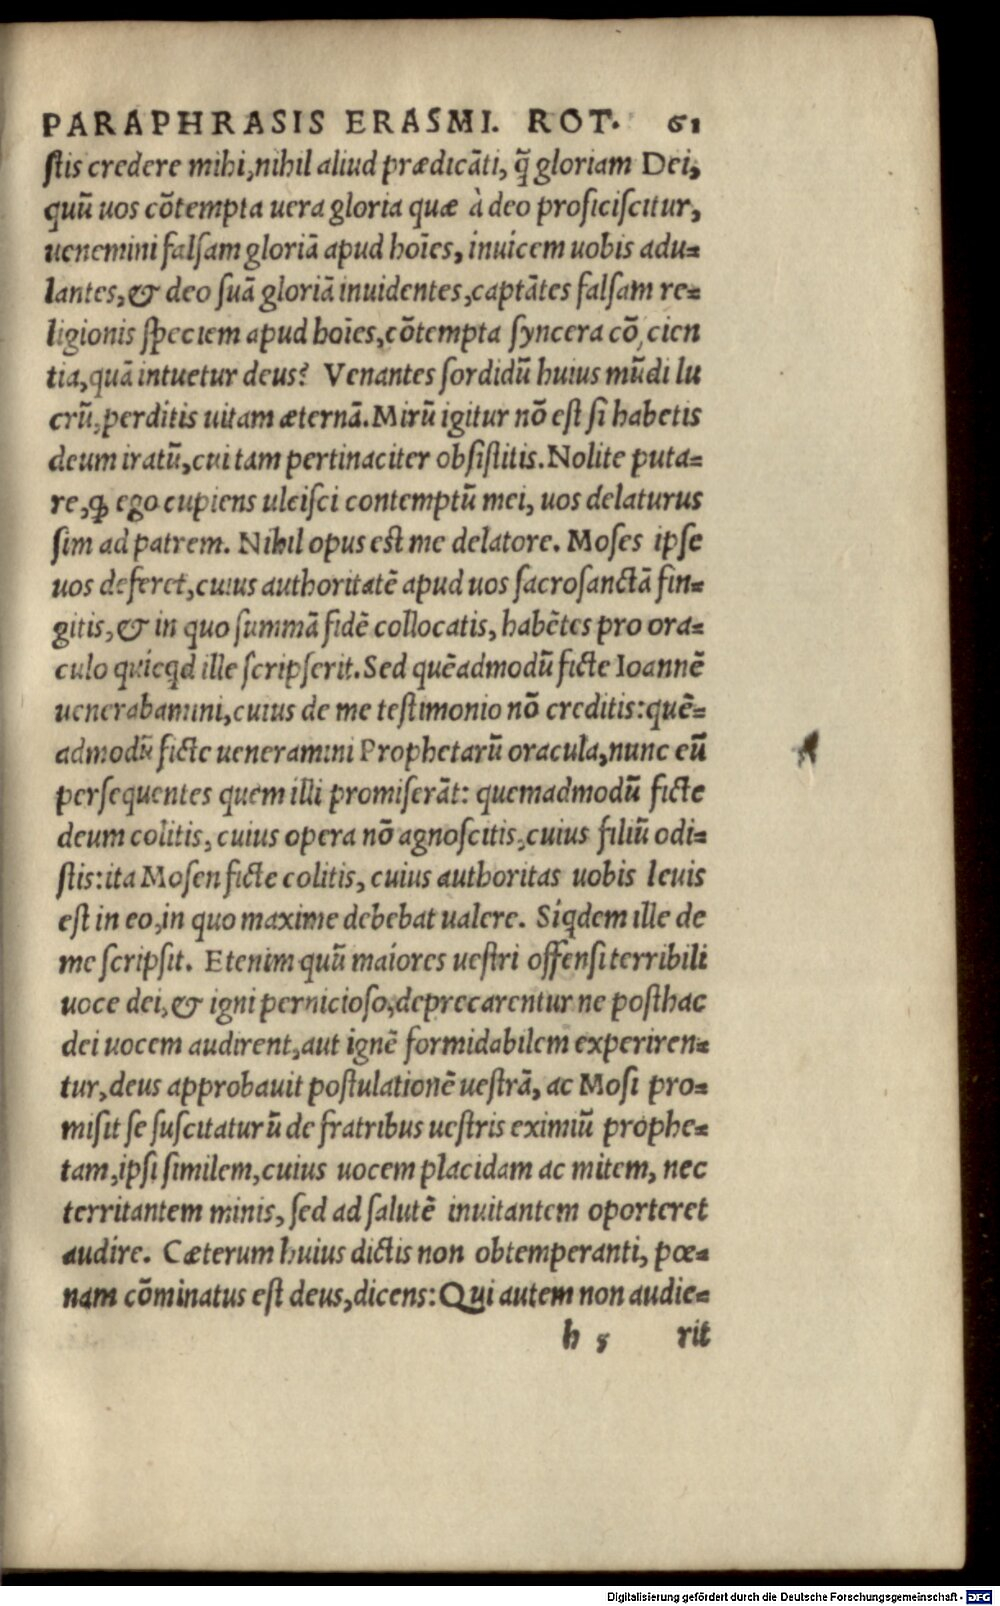 PARAPHRASIS ERASMI. ROT. 61
ſtis credere mihi, nihil aliud prædicāti, q̄ gloriam Dei,
quū uos cōtempta uera gloria quæ à deo proficiſcitur,
uenemini falſam gloriā apud hoīes, inuicem uobis adu=
lantes, & deo ſuā gloriā inuidentes, captātes falſam re=
ligionis ſpeciem apud hoīes, cōtempta ſyncera cō cien
tia, quā intuetur deus? Venantes ſordidū huius mūdi lu
crū, perditis uitam æternā. Mirū igitur nō eſt ſi habetis
deum iratū, cui tam pertinaciter obſiſtitis. Nolite puta=
re, ꝙ ego cupiens ulciſci contemptū mei, uos delaturus
ſim ad patrem. Nihil opus eſt me delatore. Moſes ipſe
uos deferet, cuius authoritatē apud uos ſacroſanctā fin=
gitis, & in quo ſummā fidē collocatis, habētes pro ora=
culo quicqd ille ſcripſerit. Sed quēadmodū ficte Ioannē
uenerabamini, cuius de me teſtimonio nō creditis: quē=
admodū ficte ueneramini Prophetarū oracula, nunc eū
perſequentes quem illi promiſerāt: quemadmodū ficte
deum colitis, cuius opera nō agnoſcitis, cuius filiū odi=
ſtis: ita Moſen ficte colitis, cuius authoritas uobis leuis
eſt in eo, in quo maxime debebat ualere. Síqdem ille de
me ſcripſit. Etenim quū maiores ueſtri offenſi terribili
uoce dei, & igni pernicioſo, deprecarentur ne poſthac
dei uocem audirent, aut ignē formidabilem experiren=
tur, deus approbauit poſtulationē ueſtrā, ac Moſi pro=
miſit ſe ſuſcitaturū de fratribus ueſtris eximiū prophe=
tam, ipſi ſimilem, cuius uocem placidam ac mitem, nec
territantem minis, ſed ad ſalutē inuitantem oporteret
audire. Cæterum huius dictis non obtemperanti, pœ=
nam cōminatus eſt deus, dicens: Qui autem non audie=
h 5 rit
Digitalisierung gefördert durch die Deutsche Forschungsgemeinschaft - DFG